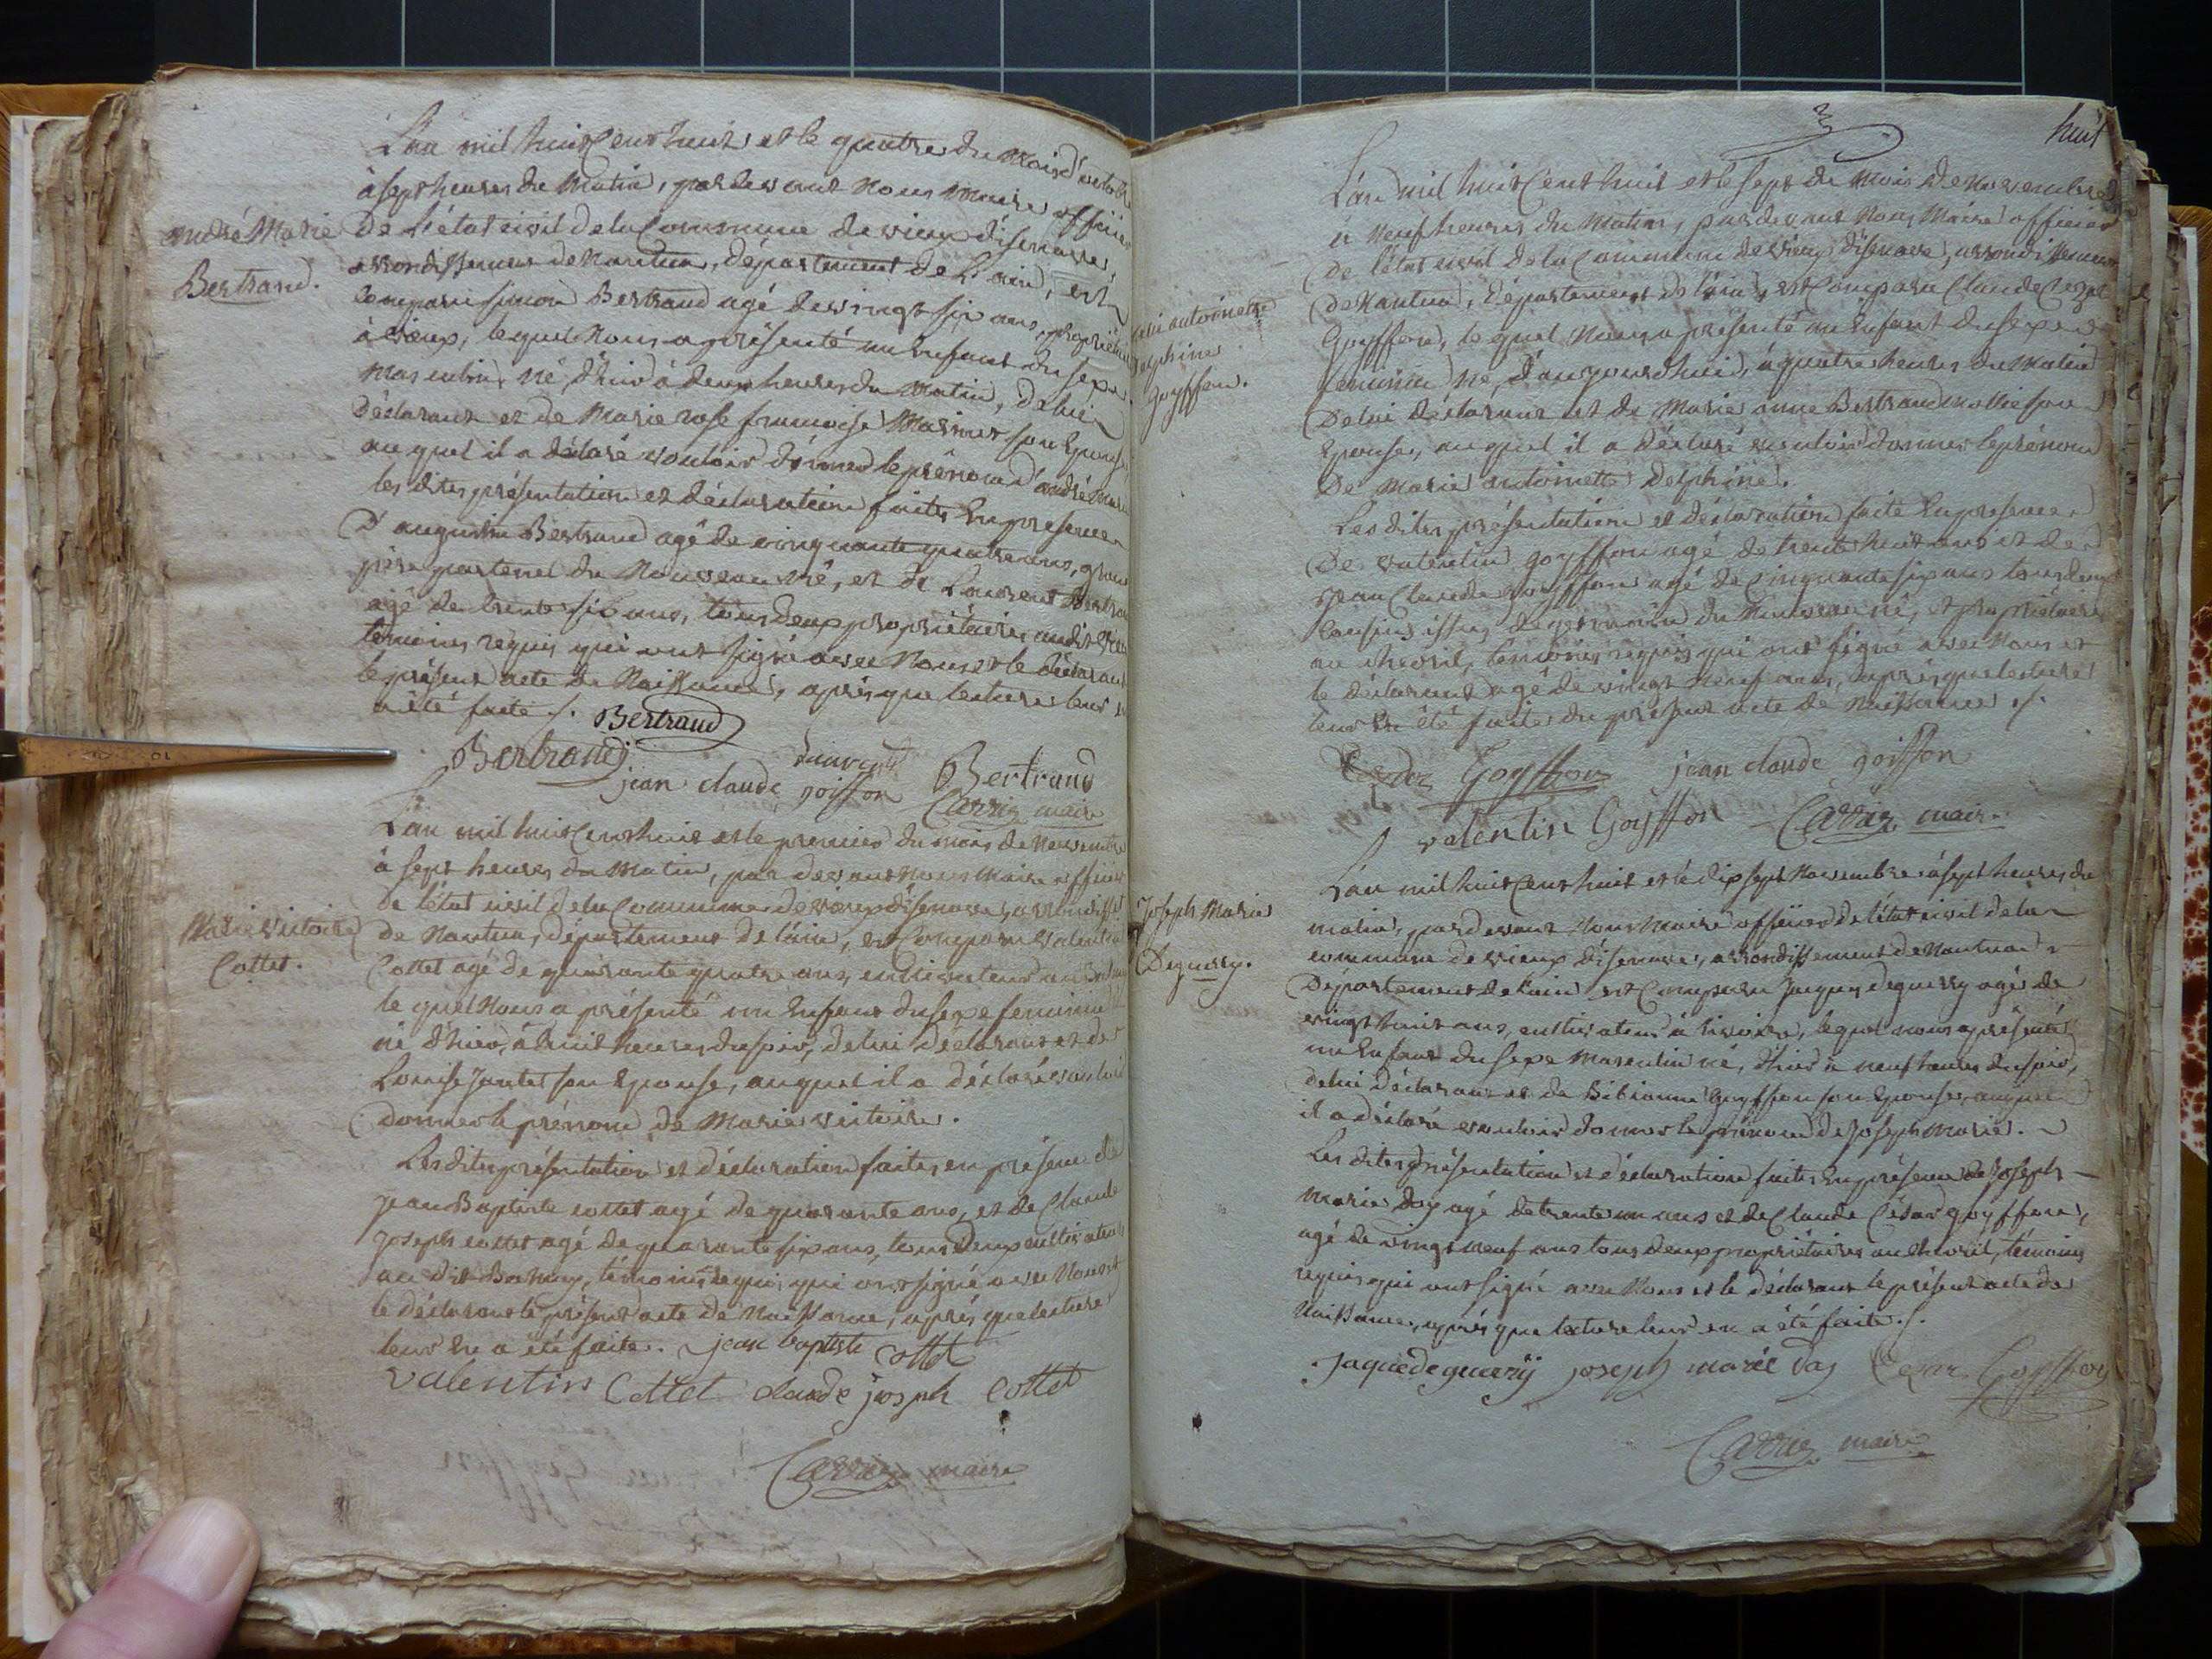 L'an mil huit Cent huit et le quatre du Mois d'octobre
à sept heures du Matin, par devant Nous Maire officier
andré Marie
Bertrand.
De l'état civil de la Commune de vieux d'isenave,
arrondissement de Nantua, département de L'ain, est
comparu simon Bertrand agé de vingt six ans, propriétaire
à vieux, lequel Nous a présenté un Enfant du sexe
Masculin né d'hier à deux heures du Matin, de lui
Déclarant et de Marie rose françoise son Epouse,
au quel il a déclaré vouloir donner le prénom d'andré Marie
les dites présentation et déclaration faites En presence
D'augustin Bertrand agé de cinquante quatre ans, grand
père paternel du Nouveau né, et de Laurent Bertrand
agé de trente six ans, tous deux propriétaires audit vieux
témoins requis qui ont signé avec Nous et le déclarant
le présent acte de Naissance, après que lecture leur en
a été faite ./. Bertrand
Bertrand Laurent Bertrand
jean claude goiffon Carrier maire
L'an mil huit Cent huit et le premier du mois de Novembre
à sept heures du Matin, par devant Nous Maire officier
Marie victoire
Cottet.
de l'état civil de la Commune de vieux d'isenave, arrondisst
de Nantua, département de l'ain, est Comparu valentin
Cottet agé de quarante quatre ans, cultivateur au
le quel Nous a présenté un Enfant du sexe feminin
né d'hier, à huit heures du soir, de lui Déclarant et de
Louise Jantet son Epouse, auquel il a déclaré vouloir
donner le prénom de Marie victoire.
Les dites présentation et déclaration faites en présence de
jean Baptiste cottet agé de quarante ans, et de Claude
joseph cottet agé de quarante six ans, tous deux cultivateurs
au dit témoins requis qui ont signé avec Nous et
le déclarant le présent acte de Naissance, après que lecture
leur En a été faite. jean baptiste cottet
valentin Cottet claude joseph cottet
Carrier maire
huit
L'an mil huit Cent huit et le sept du Mois de Novembre
à Neuf heures du Matin, par devant Nous Maire officier
De l'état civil de la Commune de vieux d'isenave, arrondissement
De Nantua, Département de l'ain, est Comparu Claude Cezar
Marie antoinette
Delphine
Goyffon.
Goyffon, le quel Nous a présenté un Enfant du sexe
feminin né, d'aujourdhui, à quatre heures du Matin
De lui déclarant et de Marie anne Bertrand son
Epouse, au quel il a déclaré vouloir donner le prénom
De Marie antoinette Delphine.
Les dites présentation et déclaration faite En presence
De valentin goyffon agé de trente huit ans et de
jean Claude goyffon agé de Cinquante six ans tous deux
Cousins issus de germain du Nouveau né, et propriétaires
au chevril, témoins requis qui ont signé avec Nous et
le déclarant agé de vingt Neuf ans, après que lecture
leur En été faite du présent acte de Naissance ./.
Cezar Goyffon jean claude goiffon
valentin Goyffon Carrier maire
L'an mil huit Cent huit et le dix sept Novembre à sept heures du
matin, par devant Nous Maire officier de l'état civil de la
Joseph Marie
Deguerry.
commune de vieux d'isenave, arrondissement de Nantua
Département de l'ain est Comparu Jaques deguerry agé de
vingt huit ans, cultivateur à lisieire, lequel nous a présenté
un Enfant du sexe Masculin né, d'hier à neuf heures du soir,
de lui Déclarant et de Bibianne Goyffon son Epouse, auquel
il a déclaré vouloir donner le prénom de Joseph Marie.
Les dites présentation et déclaration faites En présence de Joseph
Marie Day agé de trente un ans et de Claude César goyffon,
agé de vingt neuf ans tous deux propriétaires au chevril, témoins
requis qui ont signé avec Nous et le déclarant le présent acte de
Naissance, après que lecture leur en a été faite. /.
Jaque deguerry joseph marie day Cezar Goyffon
Carrier maire